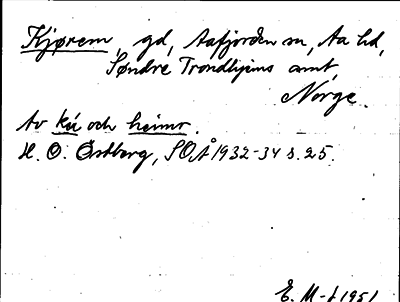 Kjørem, gd, Aafjorden sn, Aa hd,
Søndre Trondhjems amt,
Norge.
Av kú och heimr.
H. O. Östberg, SOÅ 1932-34 s. 25.
E. M-t 1951